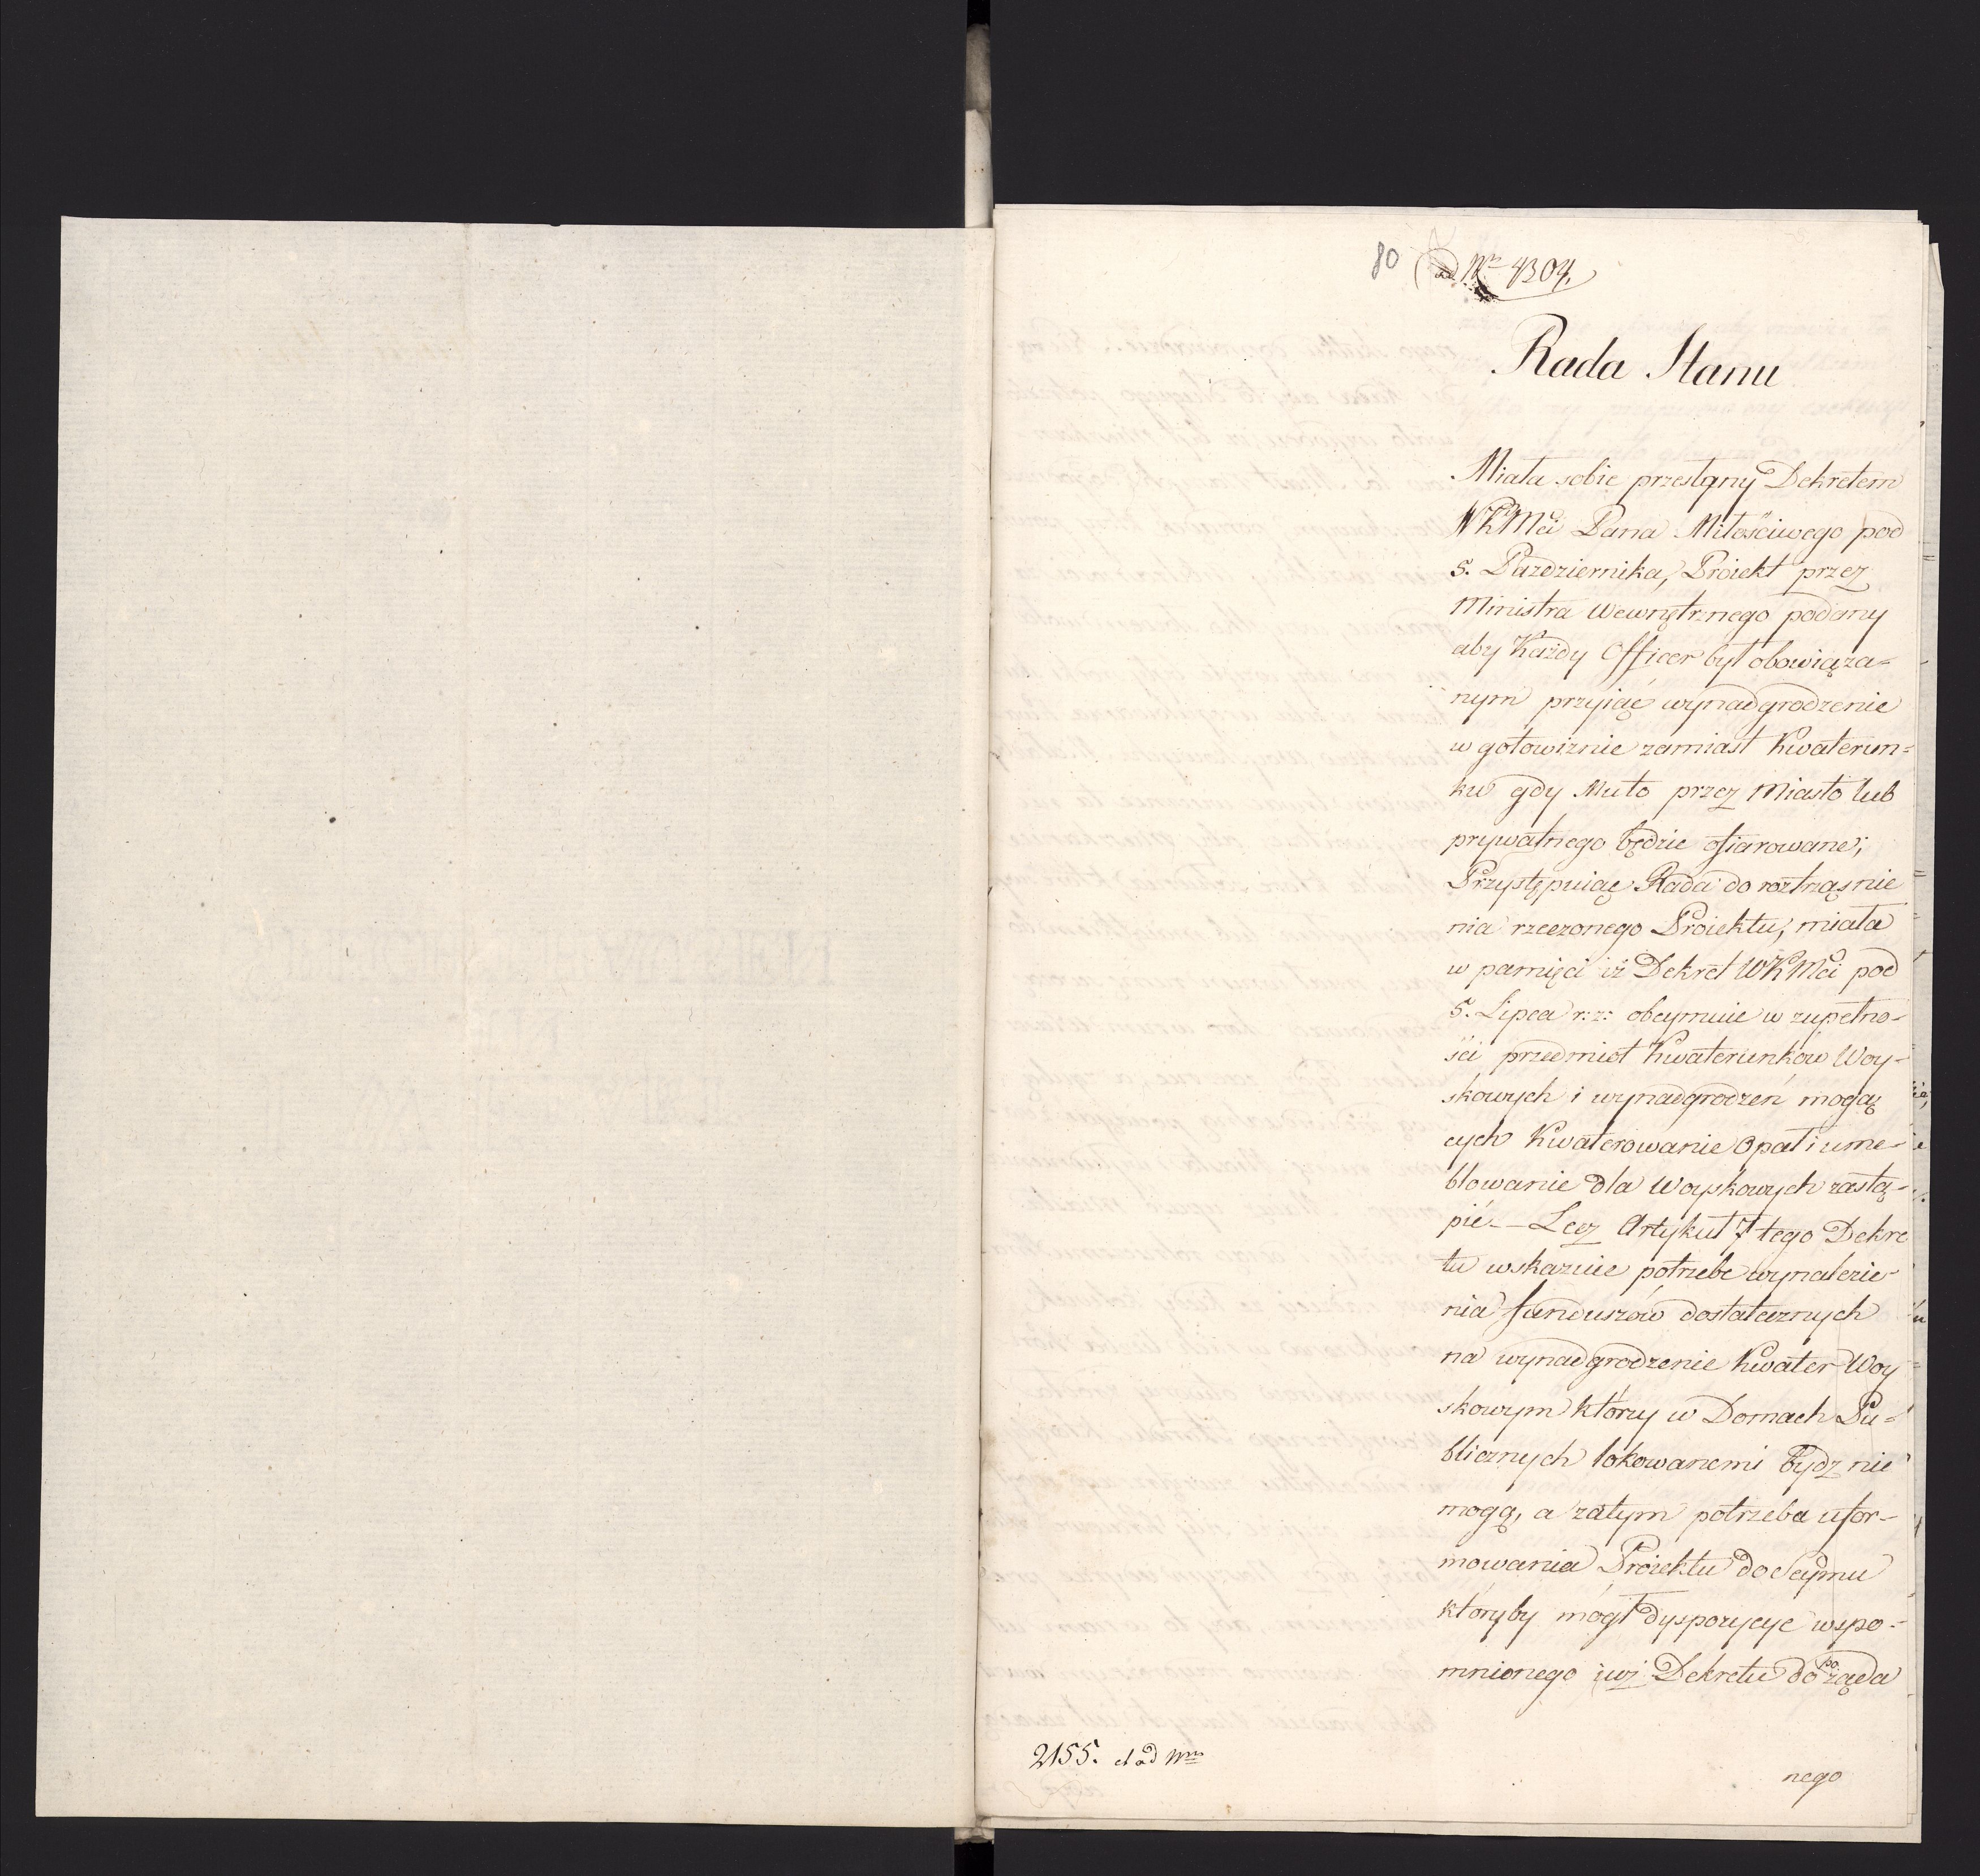 80
ad Nr 4304.
Rada Stanu
Miała sobie przesłany Dekretem
WKMci Pana Miłościwego pod
5. Pazdziernika, Proiekt przez
Ministra Wewnętrznego podany
aby Każdy Officer był obowiąza=
nym przyiąć wynadgrodzenie
w gotowiznie zamiast Kwaterun=
ku gdy Mu to przez Miasto lub
prywatnego będzie ofiarowane;
Przystępuiąc Rada do roztrząśnie
nia rzeczonego Proiektu, miała
w pamięci iż Dekret WKMci pod
5. Lipca r: z: obeymuie w zupełno-
ści przedmiot Kwaterunków Woy-
skowych i wynadgrodzeń mogą
cych Kwaterowanie Opał i ume-
blowanie dla Woyskowych zastą-
pić. — Lecz Artykuł 7 tego Dekre
tu wskazuie potrzebe wynalezie-
nia funduszów dostatecznych
na wynadgrodzenie Kwater Woy
skowym którzy w Domach Pu-
blicznych lokowanemi bydz nie
mogą, a zatym potrzeba ufor-
mowania Proiektu do Seymu
któryby mógł dyspozycye wspo-
mnionego iuż Dekretu do pożąda
nego
2155. et ad Nrm